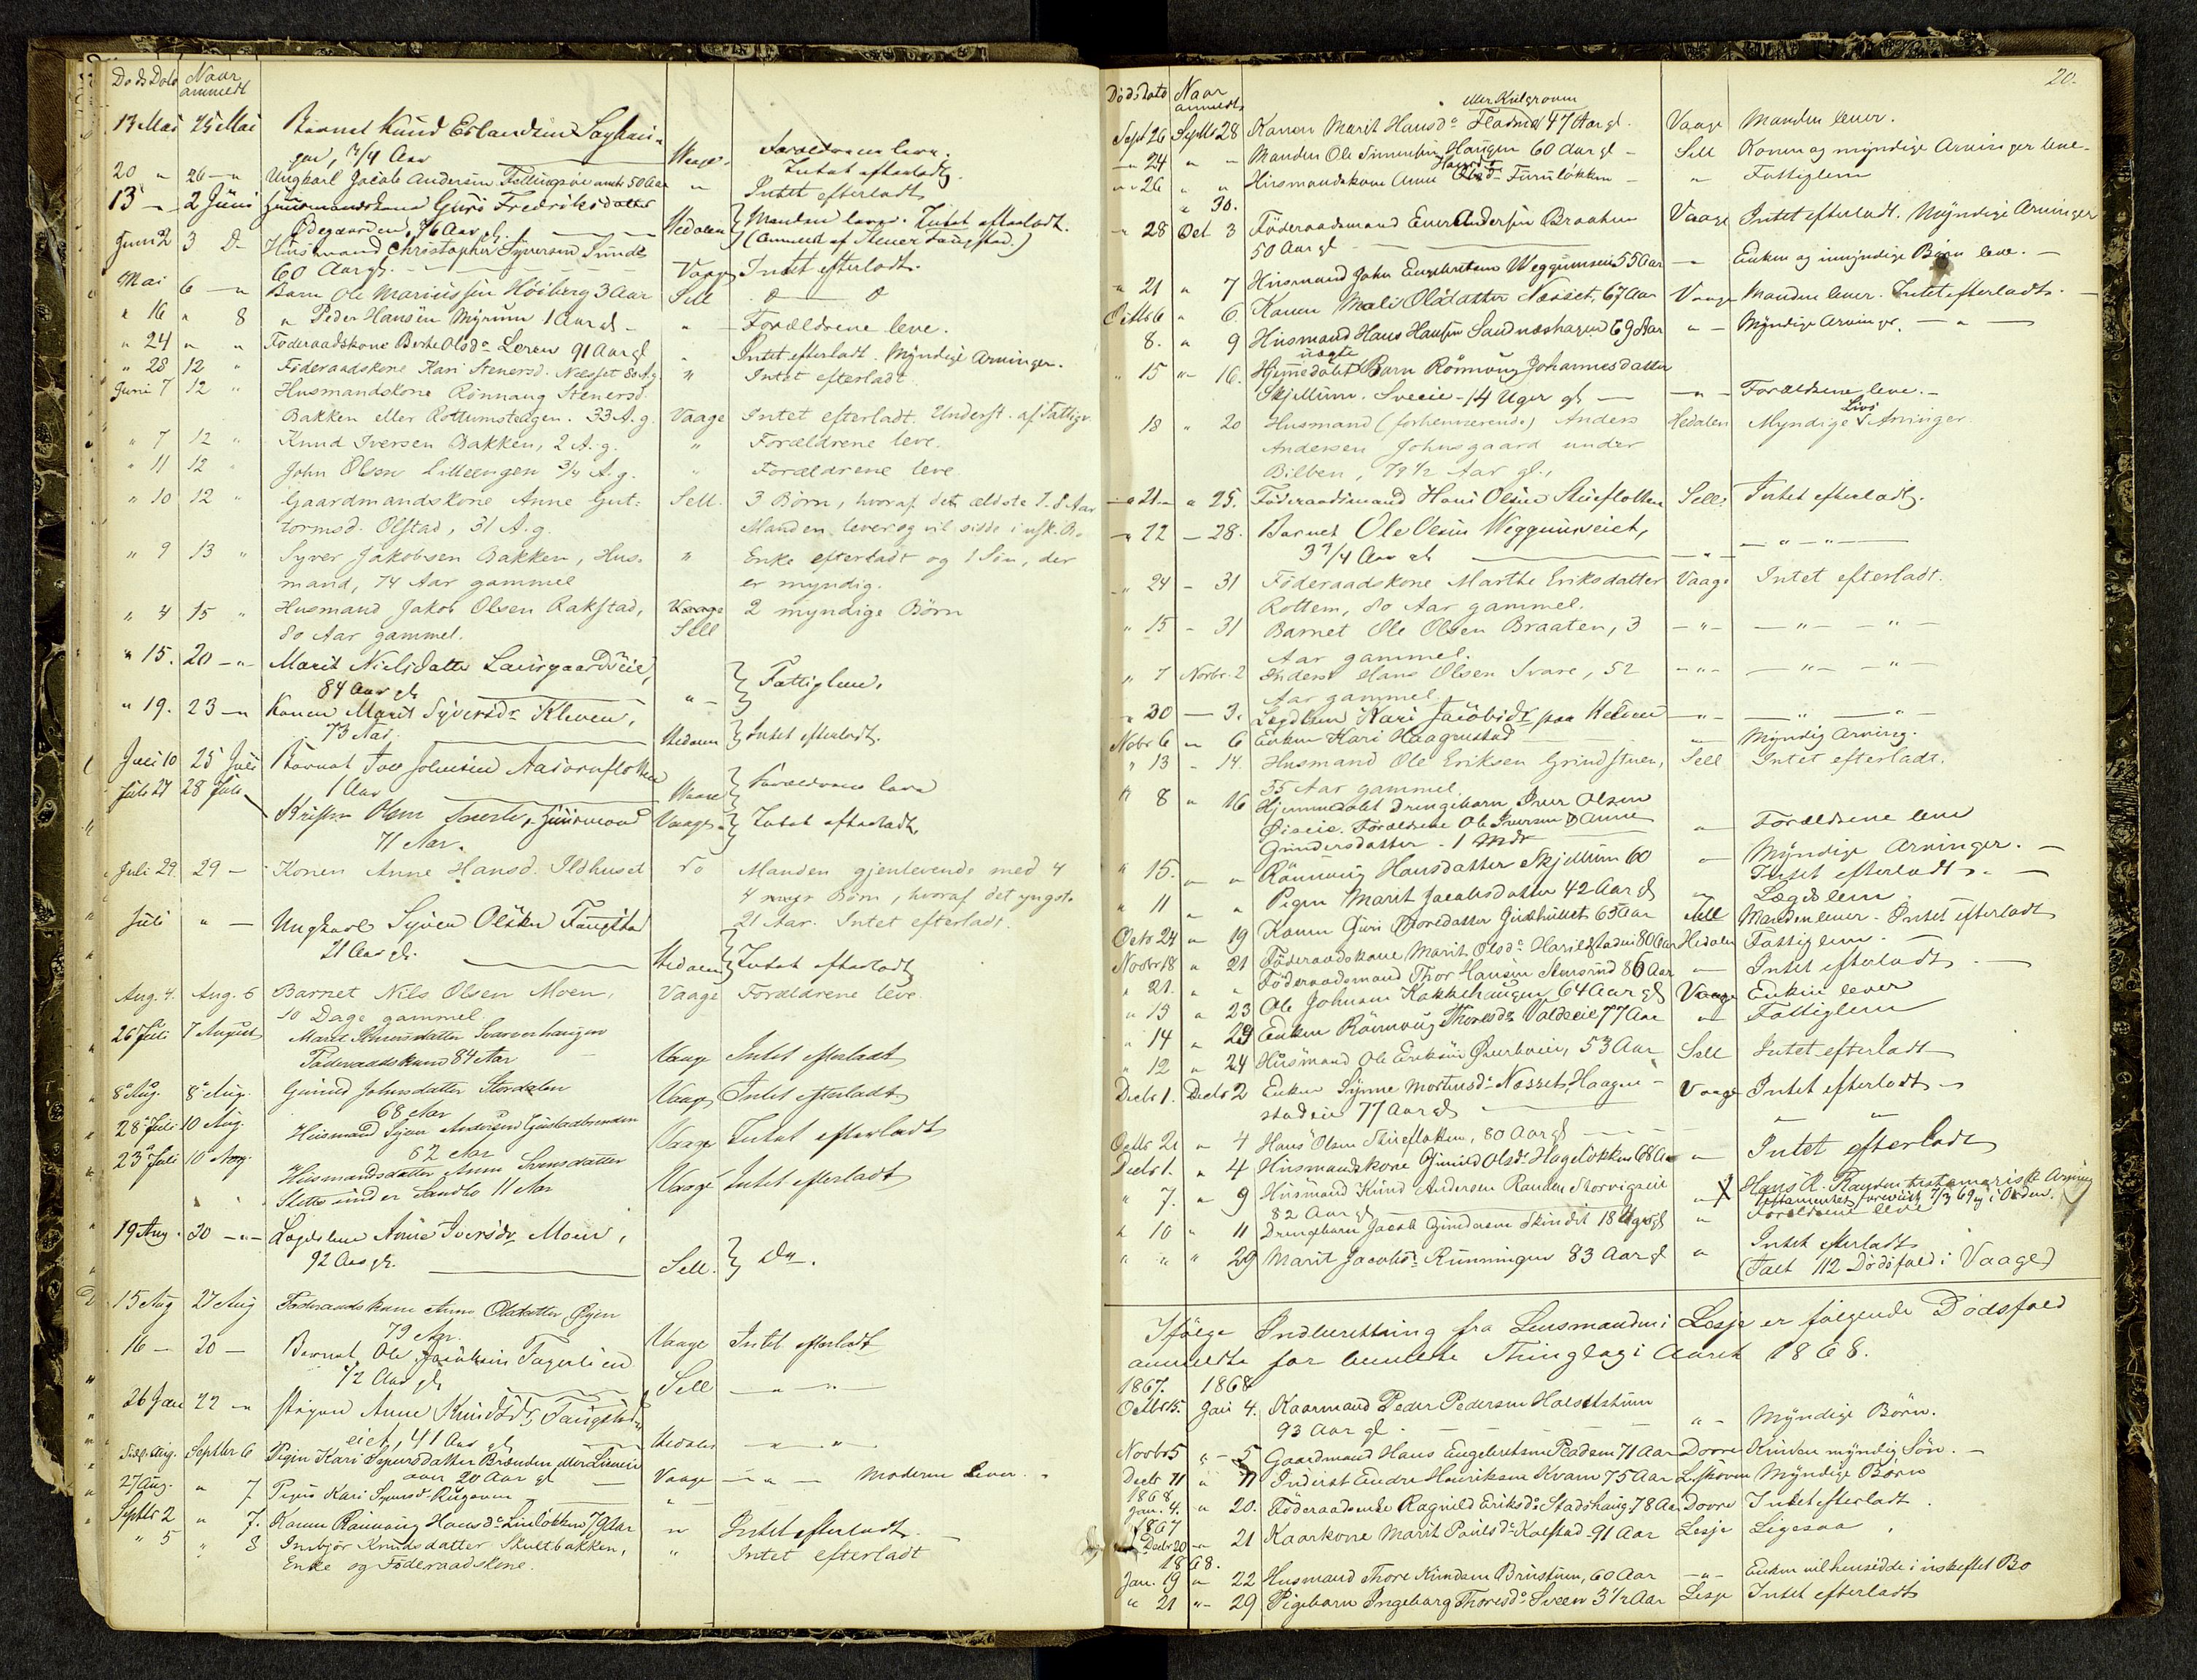 Døds Dato Naar anmeldt
13 Mai 25 Mai Barnet Knud Erlandsen
3/4 Aar Vaage. Forældrene leve.
20 " 26 — " Ungkarl Jacob Andersen 50 Aar " Intet efterladt.
13 — 2 Juni Huusmandskone Guri Fredriksdatter Intet efterladt
Ødegaarden, 76 Aar gl. Hedalen Manden lever. Intet efterladt.
(Anmeldt af Stener Faugstad.)
Juni 2 3 D— Husmand Christopher Syversen Sunde
60 Aar gl. Vaage Intet efterladt.
Mai 6 — " Barn Ole Mariussen Høiberg 3 Aar Sell
" 16 " 8 " Peder Hansen Myrum 1 Aar gl — " — Forældrene leve.
" 24 " " Føderaadskone Berthe Olsd. Leren 91 Aar gl " Intet efterladt. Myndige Arvinger.
" 28 12 " Føderaadskone Kari Stenersd. Næsset 80 A.g. " Intet efterladt
Juni 7 12 " Husmandskone Rønnaug Stenersd.
Bakken eller Rottumsteigen. 33 A. g. Vaage Intet efterladt. Underst. af Fattigv.
" 7 12 " Knud Iversen Bakken, 2 A. g. " Forældrene leve.
" 11 12 " John Olsen Lilleengen 3/4 A. g. " Forældrene leve
" 10 12 " Gaardmandskone Anne Gut-
tormsd. Olstad, 31 A. g. Sell. 3 Børn, hvoraf det ældste 7-8 Aar
Manden lever og vil sidde i usk. Bo.
" 9 13 " Syver Jakobsen Bakken, Hus-
mand, 74 Aar gammel " Enke efterladt og 1 Søn, der
er myndig.
" 4 15 " Husmand Jakob Olsen Rakstad,
80 Aar gammel. Vaage Sell 2 myndige Børn
" 15. 20 — " — Marit Nielsdatter Laurgaardseie,
84 Aar gl. " Fattiglem.
" 19. 23 — " Konen Marit Syversdr Kleven,
73 Aar. Hedalen Intet efterladt.
Juli 10 25 Juli Barnet Johnsen
1 Aar Vaage Forældrene leve
Juli 27 28 Juli Olsen Huusmand
71 Aar. Vaage Intet efterladt,
Juli 29 29 — Konen Anne Hansd. Ildhuset do Manden gjenlevende med 4
4 Børn, hvoraf det yngste
21 Aar. Intet efterladt.
Juli " — Ungkarl Syver Olsen Faugstad
21 Aar gl. Hedalen Intet efterladt
Aug. 4. Aug. 6 Barnet Nils Olsen Moen,
10 Dage gammel Vaage Forældrene leve
26 Juli 7 August Marit
Føderaadskone 84 Aar Vaage Intet efterladt
8 Aug. 8 Aug. Gunild Johnsdatter Stordalen
68 Aar Vaage Intet efterladt
28 Juli 10 Aug. Husmand Syver Andersen
62 Aar Vaage Intet efterladt
23 Juli 10 Aug. Husmandsdatter Anne Svensdatter
Slette under Sandbo 11 Aar Vaage Intet efterladt
19 Aug. 20 — " — Lægdslem Anne Iversdr Moen,
92 Aar gl. Sell. Do.
15 Aug 27 Aug Føderaadskone Anne Olsdatter Øyen
79 Aar. Vaage Intet efterladt
16 — 20 — Barnet Ole Jacobsen
1/2 Aar gl. Sell — " — " —
26 Jan 22 — " Pigen Anne Knudsdr Faugstad-
eiet, 41 Aar gl. Hedalen — " — " —
Aug. Septbr 6 Pigen Kari Syversdatter Brænden eller
over 20 Aar gl Vaage — " — Moderen lever.
27 Aug. " 7 Pigen Kari Syversd. " —
Septbr 2 " 7. Konen Rønnaug Hansd. Linløkken 79 Aar " Intet efterladt. —
" 5 " 8 Innbjør Knudsdatter Skultbakken,
Enke og Føderaadskone. " Intet efterladt
20.
Døds Dato Naar anmeldt
eller Kulgroven
Sept 26 Septbr 28 Konen Marit Hansd. 47 Aar gl. Vaage Manden lever.
— 24 " " Manden Ole Simensen Haugen 60 Aar gl — Sell Konen og myndige Arvinger leve —
— " 26 " " Husmandskone Anne Hansd. Furuløkken — " Fattiglem
" 30.
— 28 Oct. 3 Føderaadsmand Einer Andersen Braaten
50 Aar gl Vaage Intet efterladt. Myndige Arvinger
" 21 " 7 Husmand John Engebretsen Weggumseie 55 Aar — Enken og umyndige Børn leve. —
Octbr 6 " 6 Konen Mali Olsdatter Næsset, 67 Aar Vaage Manden lever. Intet efterladt. —
8. " 9 Husmand Hans Hansen Sandnæshagen 69 Aar " — Myndige Arvinger. — " —
" 15 " — 16. Hjemmedøbt uægte Barn Rønnaug Johannesdatter
Skjellum. Sveeie — 14 Uger gl — — " — Forældrene leve. —
18 " 20 Husmand (forhenværende) Anders
Andersen Johnsgaard under
Bilben, 79 1/2 Aar gl., Hedalen Myndige Livs Arvinger
— " 21 — " 25. Føderaadsmand Hans Olsen Stueflotten Sell. Intet efterladt.
— " 22 — 28. Barnet Ole Olsen Weggumseiet,
3 3/4 Aar gl. — " — — " — " —
— " 24 — 31 Føderaadskone Marthe Eriksdatter
Rottem, 80 Aar gammel. Vaage Intet efterladt.
" 15 — 31 Barnet Ole Olsen Braaten, 3
Aar gammel. — " — — " — — " —
" 7 Novbr. 2 Inderst Hans Olsen Svare, 52
Aar gammel. — " — — " — — " —
— " 30 — 3. Lægdslem Kari Jacobsdr. paa — " — — " — " —
Novbr 6 — " 6 Enken Kari Haagenstad — " Myndig Arving.
" 13 — 14. Husmand Ole Eriksen Grindstuen,
55 Aar gammel. Sell Intet efterladt.
" 8 " 16 Hjemmedøbt Drengebarn Iver Olsen
Øieeie. Forældrene Ole Iversen & Anne
Gundersdatter. — 1 Mdr " Forældrene leve
" 15. — " Rønnaug Hansdatter Skjellum 60 — Myndige Arvinger. —
Intet efterladt. —
" 11 — " Pigen Marit Jacobsdatter 42 Aar gl " Lægdslem
Octr 24 " 19 Konen Guri Thoresdatter 65 Aar Sell Manden lever. Intet efterladt
Novbr 18 " 21 Føderaadskone Marit Olsd. 80 Aar Hedalen Fattiglem. —
" 21. " " Føderaadsmand Thor Hansen Stensrud 86 Aar — Intet efterladt. —
" 13 " 23 Ole Johnsen Kakkelhaugen 64 Aar gl Vaage Enken lever
" 14 " 29 Enken Rønnaug Thoresdr. Valdseie 77 Aar " Fattiglem
" 12 " 24 Husmand Ole Eriksen 53 Aar Sell Intet efterladt
Decbr 1. Decbr 2 Enken Synne Mortensd. Næsset, Haagen-
stadeie 77 Aar gl Vaage Intet efterladt —
Octbr 21 " 4 Hans Olsen Stueflotten, 80 Aar gl — " — " —
Decbr 1. " 4 Husmandskone Gunild Olsd. Hageløkken 68 Aar — " Intet efterladt
" 7. " 9 Husmand Knud Andersen Randen Storvigseie
82 Aar gl " X Hans K. Randen testamarisk Arving
testamentet forevist 7/3 69 og i Orden.
" 10 " 11 Drengebarn Jacob Gundersen 18 Uger gl " Forældrene leve
" " " 29 Marit Jacobsd. Runningen 83 Aar gl " Intet efterladt
(Talt 112 Dødsfald i Vaage)
Ifølge Indberetning fra Lensmanden i Lesje er følgende Dødsfald
anmeldte for bemeldte Thinglag i Aaret 1868.
1867. 1868
Octbr 15. Jan 4. Kaarmand Peder Pedersen
93 Aar gl. " — Myndige Børn.
Novbr 5 " — 5 Gaardmand Hans Engebretsen 71 Aar Dovre myndig Søn. —
Decbr 11 " 11 Inderst Endre Henriksen Kvam 75 Aar Lesje Myndige Børn
1868
Jan. 4. " 20. Føderaadsenke Ragnild Eriksd. Stadshaug 78 Aar Dovre Intet efterladt.
1867
Decbr 20 — 21 Kaarkone Marit Paulsd. Kolstad 91 Aar Lesje Ligesaa.
1868.
Jan. 19 " 22 Husmand Thore Knudsen 60 Aar — " — Enken vil hensidde i uskiftet Bo
" 21 " — 29 Pigebarn Ingeborg Thoresd. Sveen 3 1/2 Aar Lesje Intet efterladt